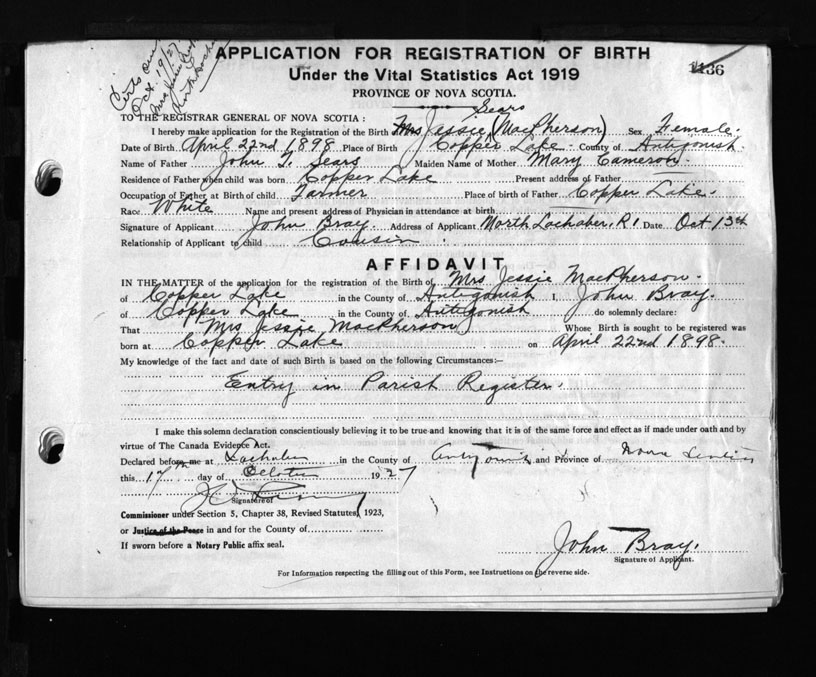 Certs
Oct. 19/27
Mrs
APPLICATION FOR REGISTRATION OF BIRTH
1136
Under the Vital Statistics Act 1919
PROVINCE OF NOVA SCOTIA.
TO THE REGISTRAR GENERAL OF NOVA SCOTIA :
Sears
I hereby make application for the Registration of the Birth Mrs Jessie (MacPherson) Sex Female.
Date of Birth April 22nd 1898 Place of Birth Copper Lake - County of Antigonish.
Name of Father John T. Sears Maiden Name of Mother Mary Cameron.
Residence of Father when child was born Copper Lake Present address of Father
Occupation of Father at Birth of child Farmer Place of birth of Father Copper Lake.
Race White Name and present address of Physician in attendance at birth
Signature of Applicant John Bray. Address of Applicant North Lochaber, R 1 Date Oct 13th
Relationship of Applicant to child Cousin
AFFIDAVIT
IN THE MATTER of the application for the registration of the Birth of Mrs Jessie MacPherson.
of Copper Lake in the County of Antigonish I, John Bray.
of Copper Lake in the County of Antigonish do solemnly declare:
That Mrs Jessie MacPherson Whose Birth is sought to be registered was
born at Copper Lake on April 22nd 1898.
My knowledge of the fact and date of such Birth is based on the following Circumstances:—
Entry in Parish Register.
I make this solemn declaration conscientiously believing it to be true and knowing that it is of the same force and effect as if made under oath and by
virtue of The Canada Evidence Act.
Declared before me at Lochaber in the County of Antigonish and Province of Nova Scotia
this 17 day of October 1927
Signature of
Commissioner under Section 5, Chapter 38, Revised Statutes, 1923,
or Justice of the Peace in and for the County of
If sworn before a Notary Public affix seal.
John Bray.
Signature of Applicant.
For Information respecting the filling out of this Form, see Instructions on the reverse side.